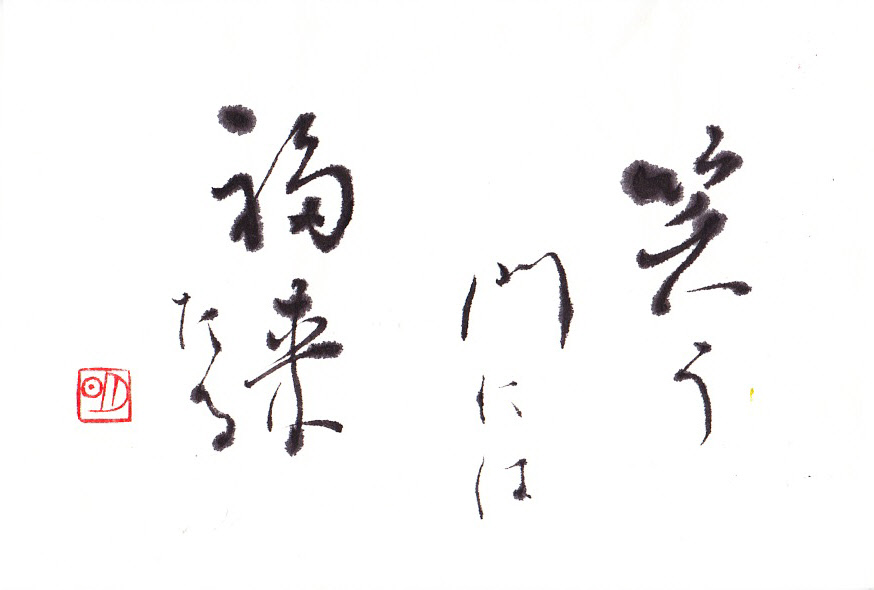 笑う
門には
福来
たる
明